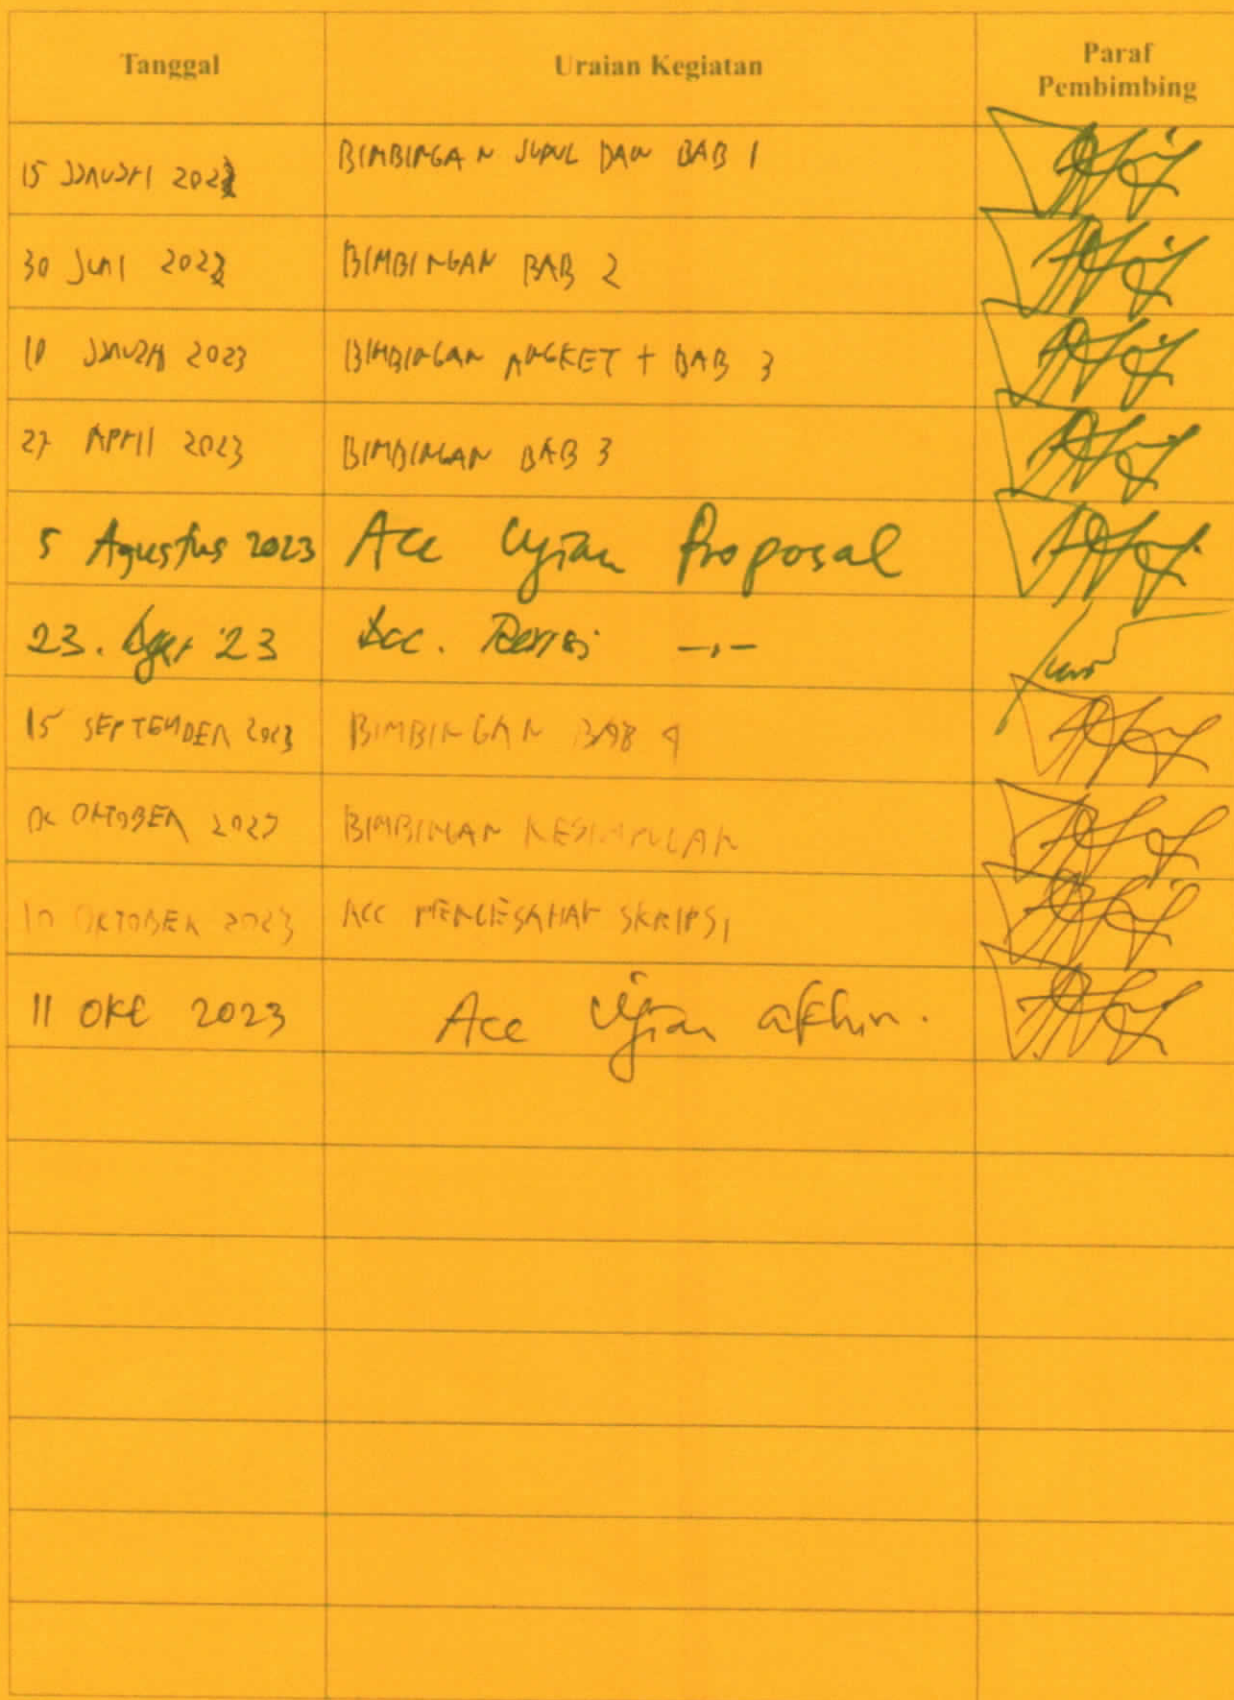 Tanggal Uraian Kegiatan Paraf Pembimbing
15 JANUARI BIMBINGAN JUDUL DAN BAB 1
30 JUNI BIMBINGAN BAB 2
10 JANUARI 2023 BIMBINGAN ANGKET + BAB 3
27 APRIL 2023 BIMBINGAN BAB 3
5 Agustus 2023 Acc Ujian Proposal
23. '23 Acc. Revisi —,—
15 SEPTEMBER 2023 BIMBINGAN BAB 4
OKTOBER 2023 BIMBINGAN KESIMPULAN
10 OKTOBER 2023 ACC PENGESAHAN SKRIPSI
11 OKT 2023 Acc Ujian akhir.